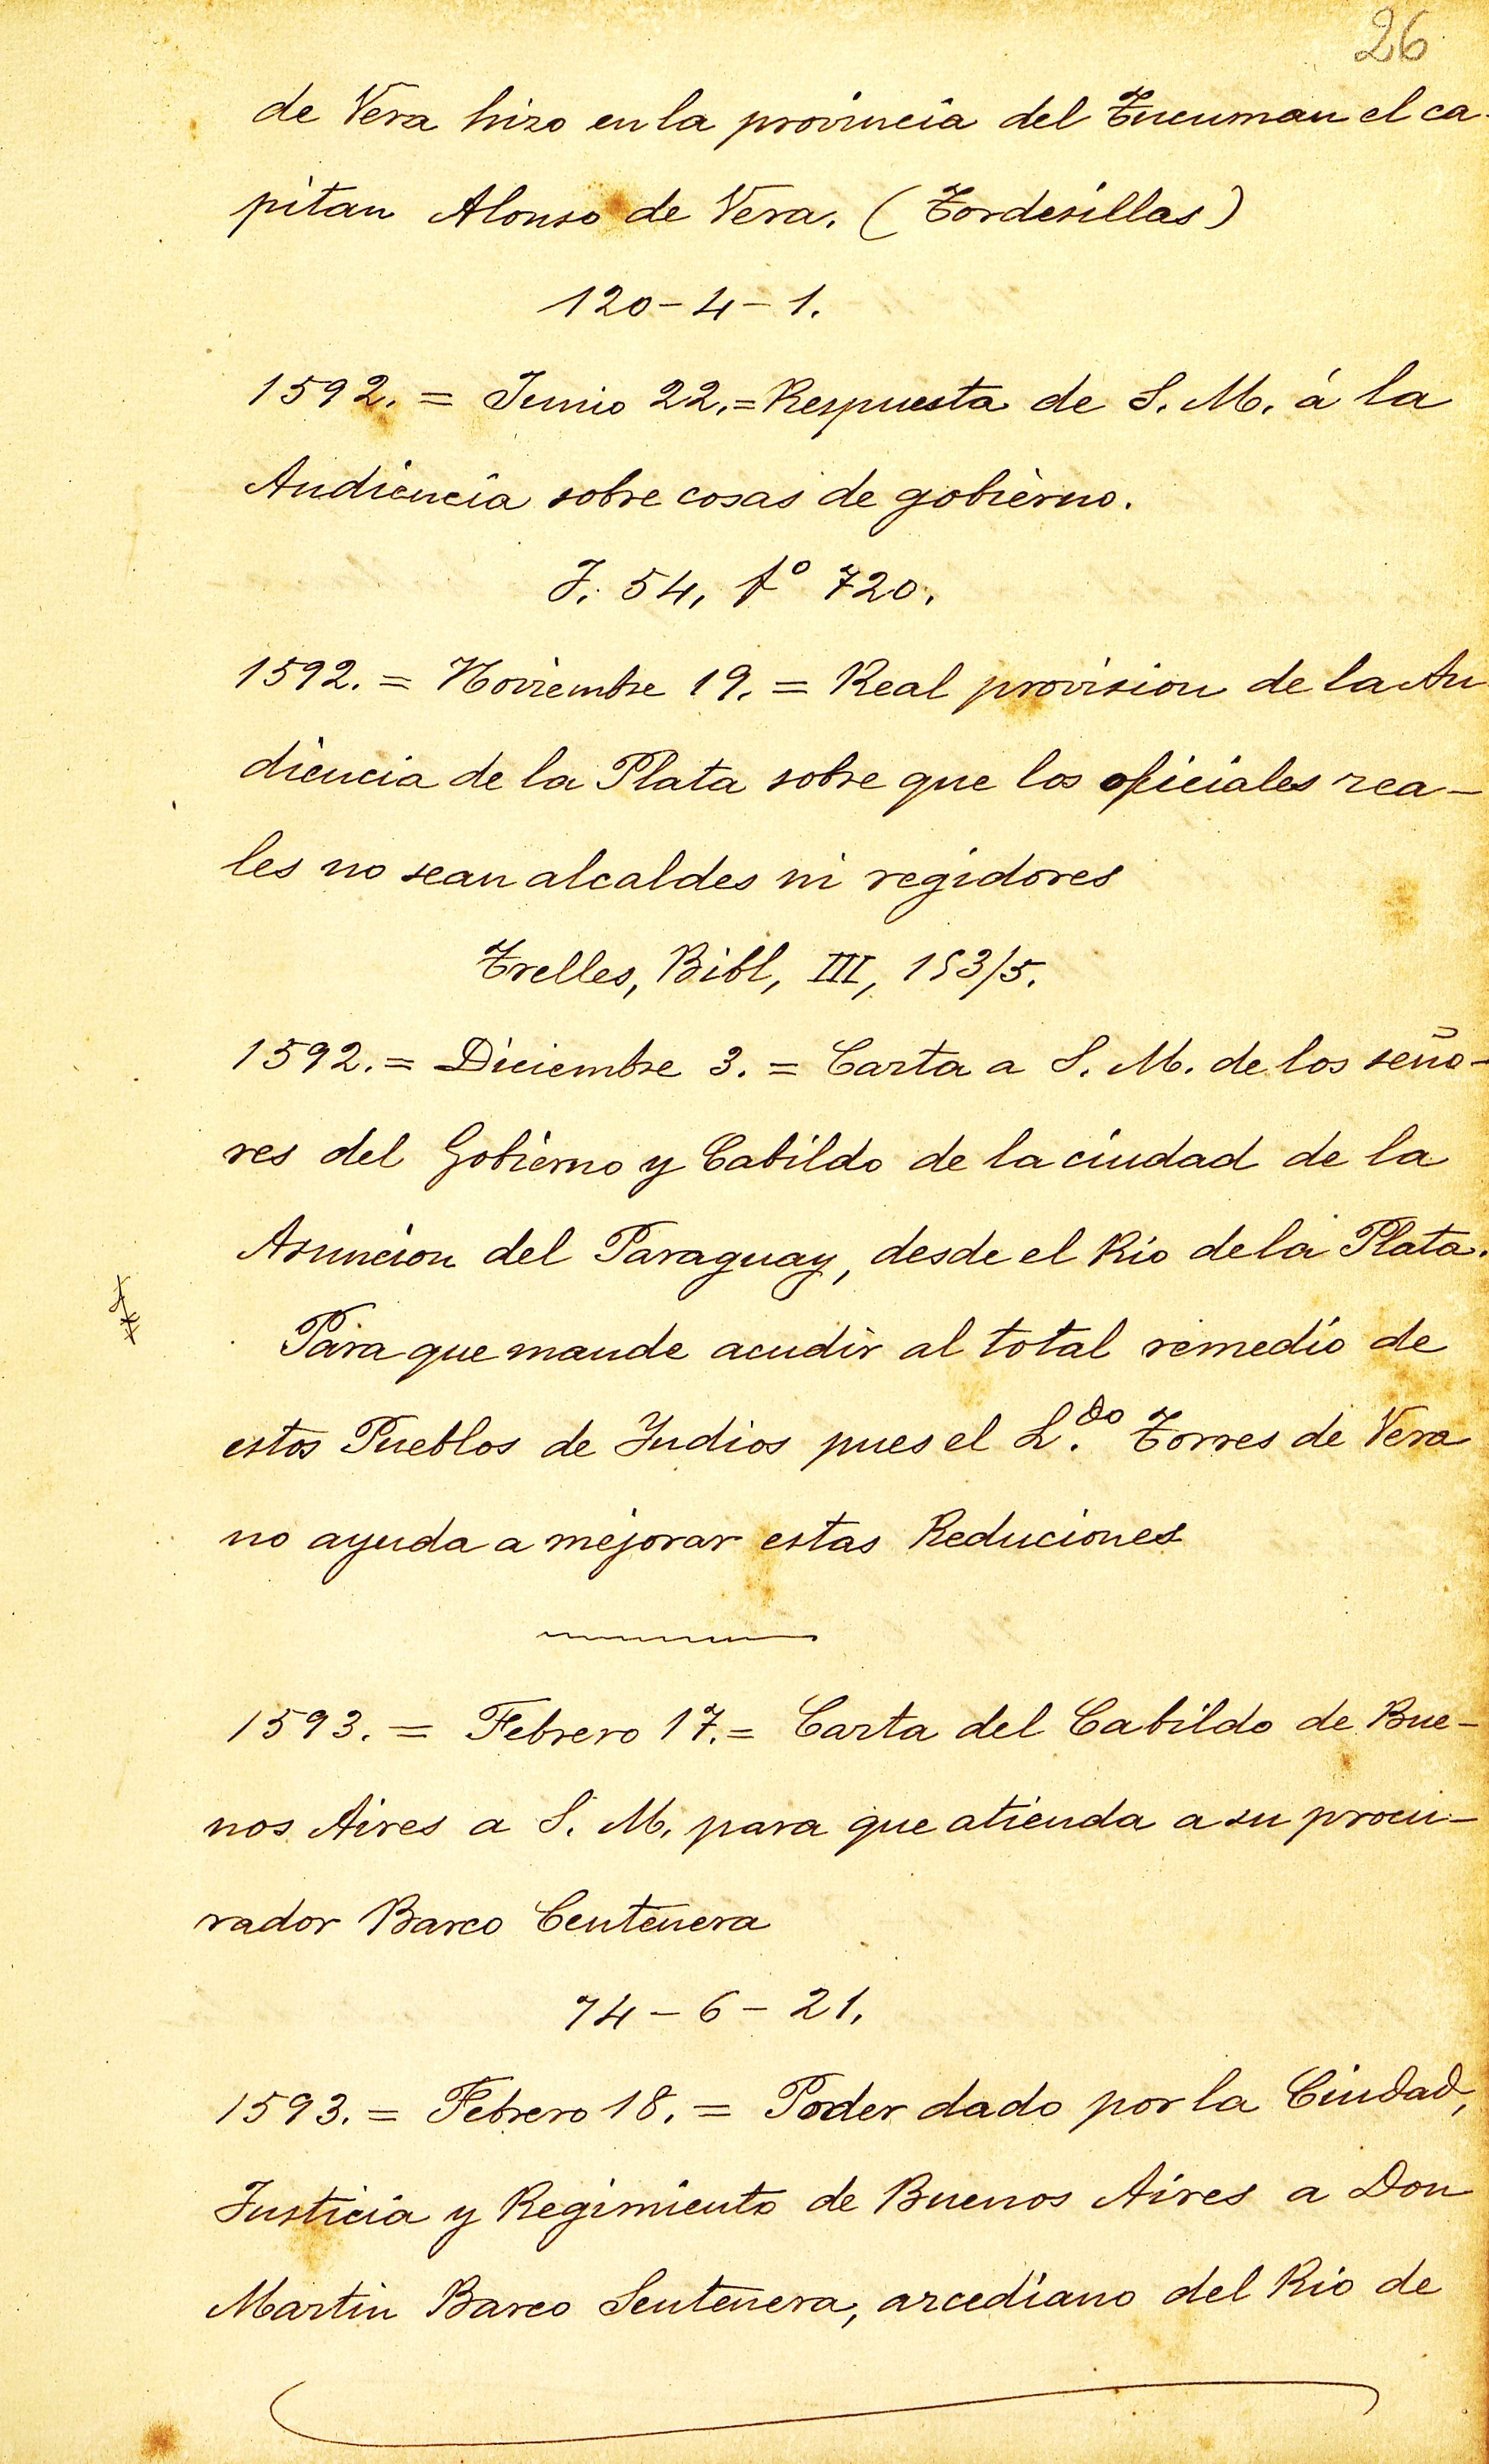 26
de Vera hizo en la provincia del Tucuman el ca-
pitan Alonso de Vera. (Tordesillas)
120-4-1.
1592. = Junio 22. = Respuesta de S. M. á la
Audiencia sobre cosas de gobierno.
J. 54, fº 720.
1592. = Noviembre 19. = Real provision de la Au
diencia de la Plata sobre que los oficiales rea-
les no sean alcaldes ni regidores
Trelles, Bibl, III, 153/5.
1592. = Diciembre 3. = Carta a S. M. de los seño-
res del Gobierno y Cabildo de la ciudad de la
Asuncion del Paraguay, desde el Rio de la Plata.
Para que mande acudir al total remedio de
estos Pueblos de Indios pues el L.do Torres de Vera
no ayuda a mejorar estas Reduciones
1593. = Febrero 17. = Carta del Cabildo de Bue-
nos Aires a S. M. para que atienda a su procu-
rador Barco Centenera
74-6-21.
1593. = Febrero 18. = Poder dado por la Ciudad,
Justicia y Regimiento de Buenos Aires a Don
Martin Barco Sentenera, arcediano del Rio de